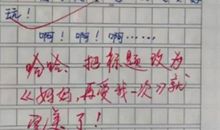 玩！
啊！啊！啊……
哈哈，把标题改为
《妈妈，再爱我一次》就
完美了！